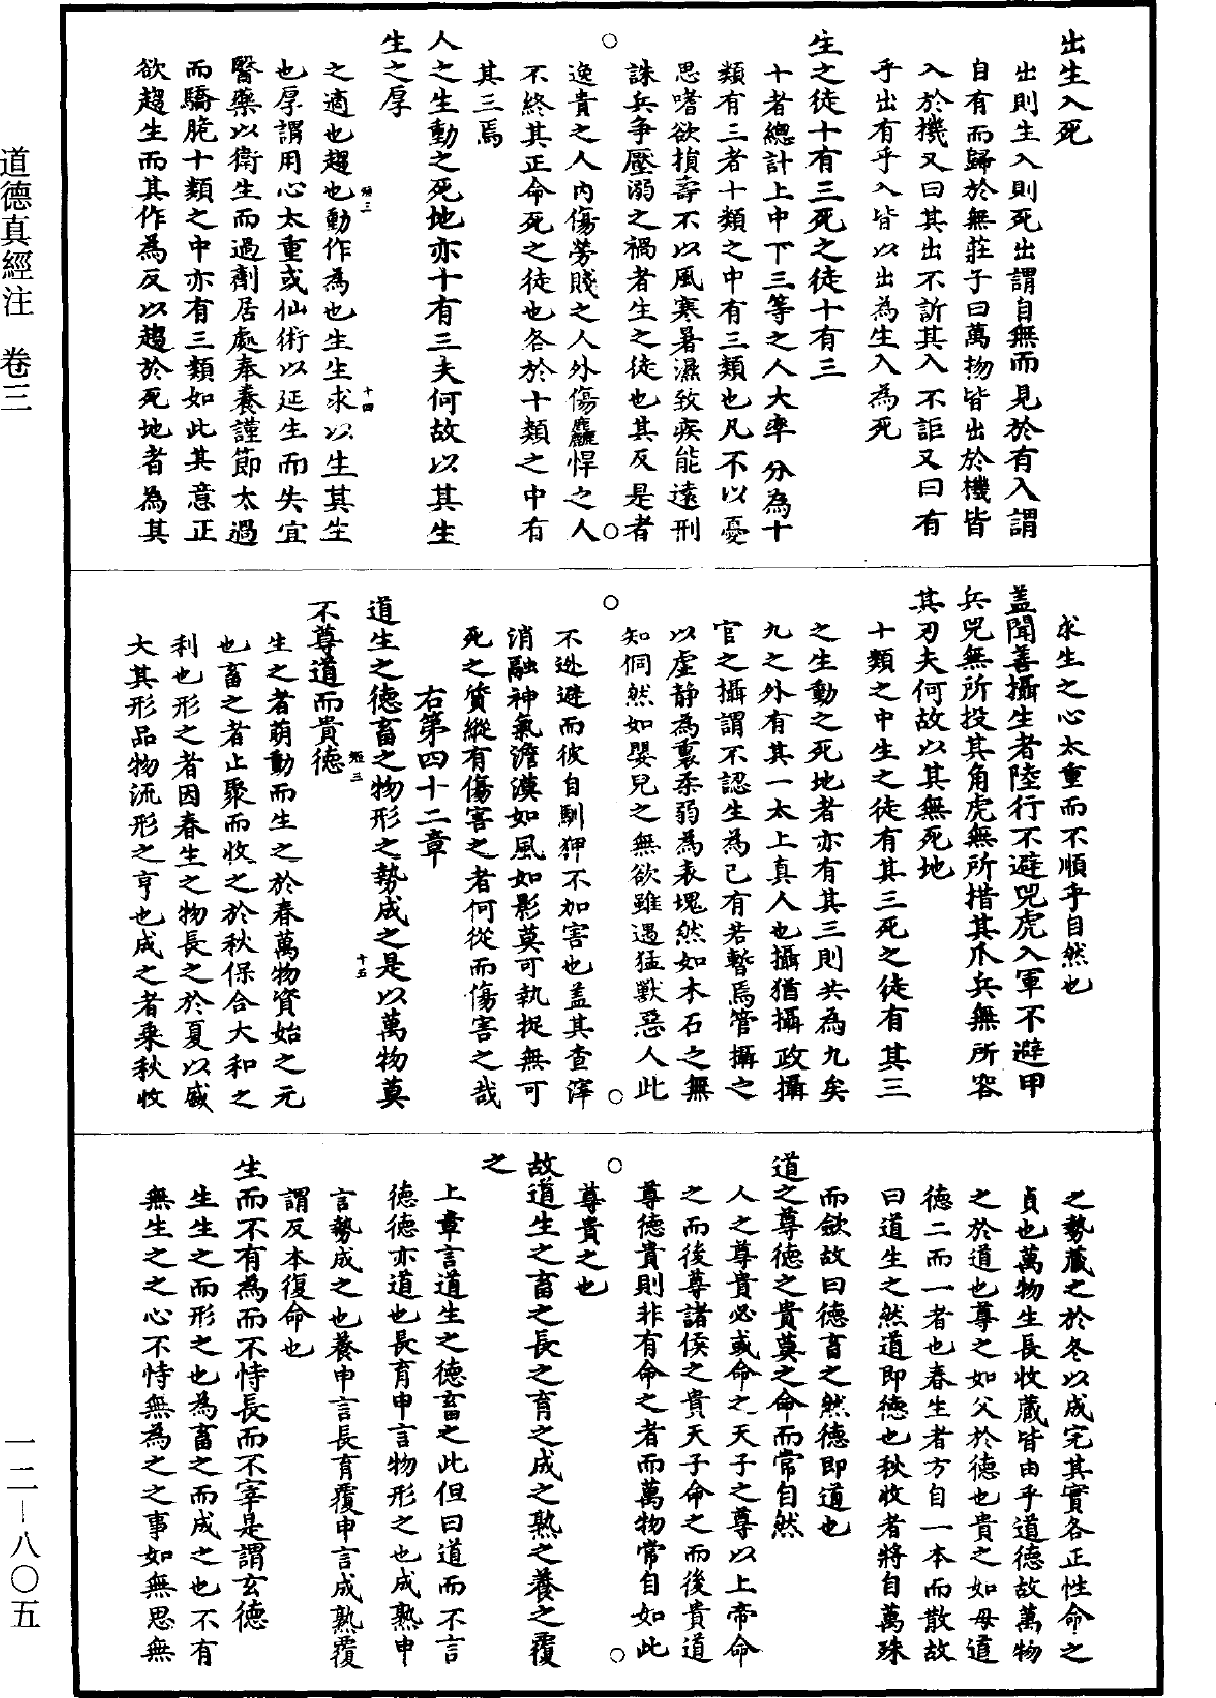 道德真經注　卷三
出生入死
出則生入則死出謂自無而見於有入謂
自有而歸於無莊子曰萬物皆出於機皆
入於機又曰其出不訢其入不詎又曰有
乎出有乎入皆以出為生入為死
生之徒十有三死之徒十有三
十者總計上中下三等之人大率分為十
類有三者十類之中有三類也凡不以憂
思嗜欲損壽不以風寒暑濕致疾能遠刑
誅兵争壓溺之禍者生之徒也其反是者
逸貴之人內傷勞賤之人外傷麤悍之人
不終其正命死之徒也各於十類之中有
其三焉
人之生動之死地亦十有三夫何故以其生
生之厚
之適也趨也動作為也生生求以生其生
也厚謂用心太重或仙術以延生而失宜
醫藥以衛生而過劑居處奉養謹節太過
而驕脆十類之中亦有三類如此其意正
欲趨生而其作為反以趨於死地者為其
求生之心太重而不順乎自然也
盖聞善攝生者陸行不避兕虎入軍不避甲
兵兕無所投其角虎無所措其爪兵無所容
其刃夫何故以其無死地
十類之中生之徒有其三死之徒有其三
之生動之死地者亦有其三則共為九矣
九之外有其一太上真人也攝猶攝政攝
官之攝謂不認生為己有若暫焉管攝之
以虛静為裏柔弱為表塊然如木石之無
知侗然如嬰兒之無欲雖遇猛獸惡人此
不逃避而彼自馴狎不加害也盖其查滓
消融神氣澹漠如風如影莫可執捉無可
死之質縱有傷害之者何從而傷害之哉
右第四十二章
道生之德畜之物形之勢成之是以萬物莫
不尊道而貴德
生之者萌動而生之於春萬物資始之元
也畜之者止聚而收之於秋保合大和之
利也形之者因春生之物長之於夏以盛
大其形品物流形之亨也成之者乘秋收
之勢藏之於冬以成完其實各正性命之
貞也萬物生長收藏皆由乎道德故萬物
之於道也尊之如父於德也貴之如母道
德二而一者也春生者方自一本而散故
曰道生之然道即德也秋收者將自萬殊
而斂故曰德畜之然德即道也
道之尊德之貴莫之命而常自然
人之尊貴必或命之天子之尊以上帝命
之而後尊諸侯之貴天子命之而後貴道
尊德貴則非有命之者而萬物常自如此
尊貴之也
故道生之畜之長之育之成之熟之養之覆
之
上章言道生之德畜之此但曰道而不言
德德亦道也長育申言物形之也成熟申
言勢成之也養申言長育覆申言成熟覆
謂反本復命也
生而不有為而不恃長而不宰是謂玄德
生生之而形之也為畜之而成之也不有
無生之之心不恃無為之之事如無思無
短三
十四
短三
十五
一二—八〇五